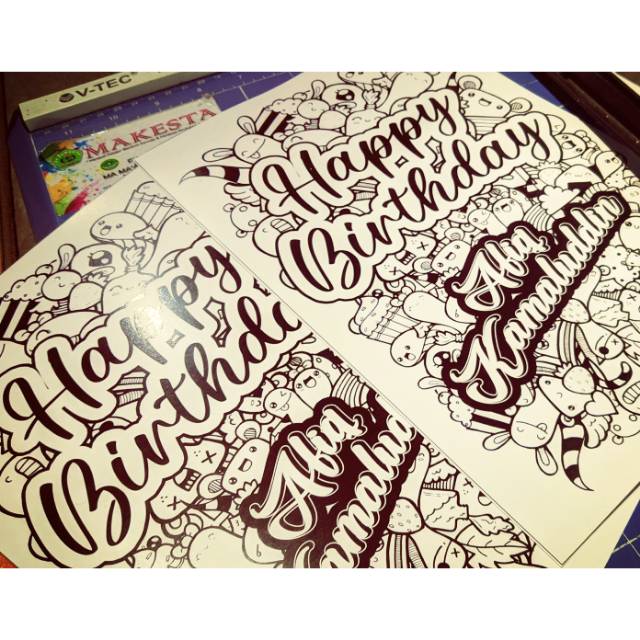 V-TEC
MAKESTA
Happy
Birthday
Afin
Kamaluddin
Happy
Birthda
Afin
Kamalud